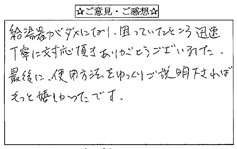 ☆ご意見・ご感想☆
給湯器がダメになり、困っていたところ迅速
丁寧に対応頂きありがとうございました。
最後に、使用方法をゆっくりご説明下されば
もっと嬉しかったです。